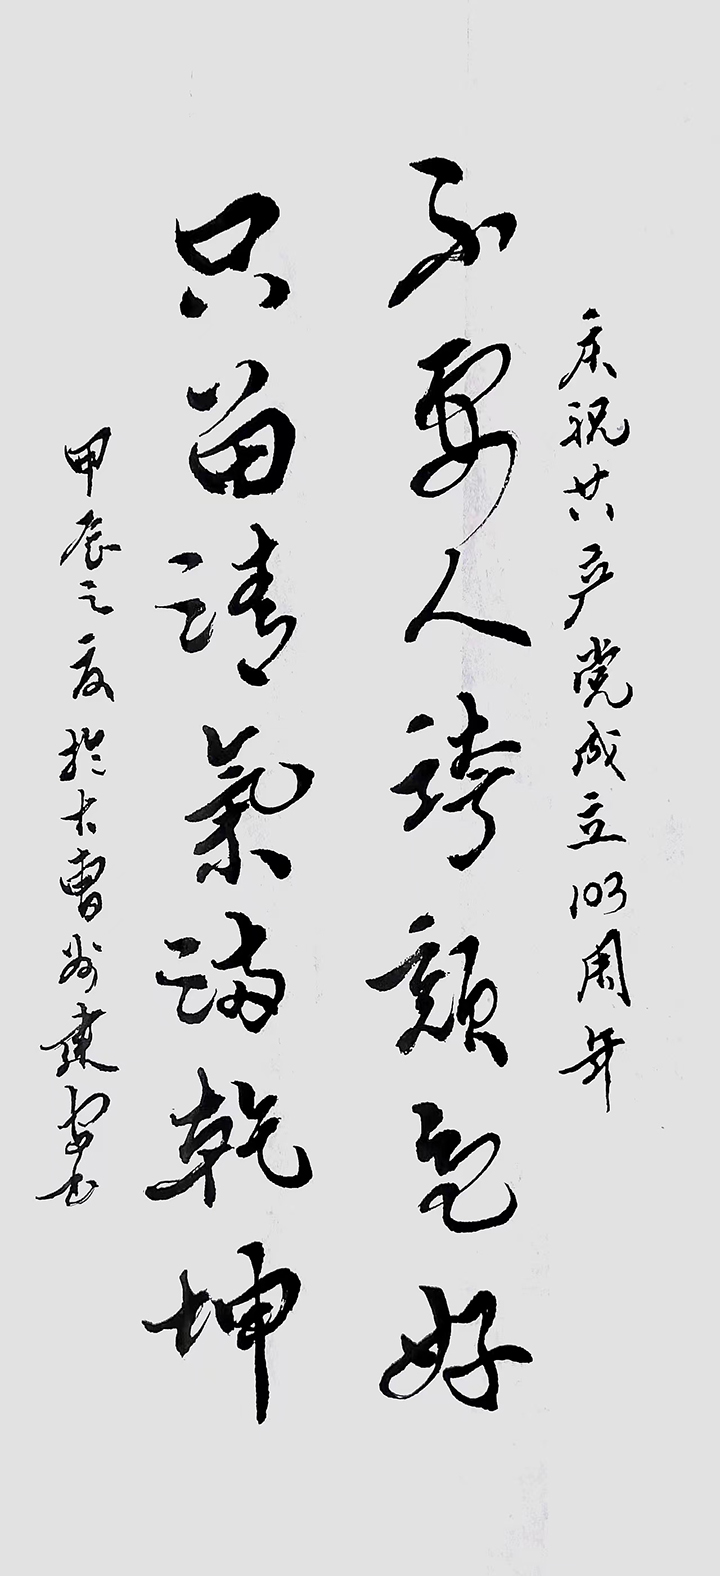 庆祝共产党成立103周年
不要人誇顔色好
只留清氣满乾坤
甲辰之夏於古曹州建安书